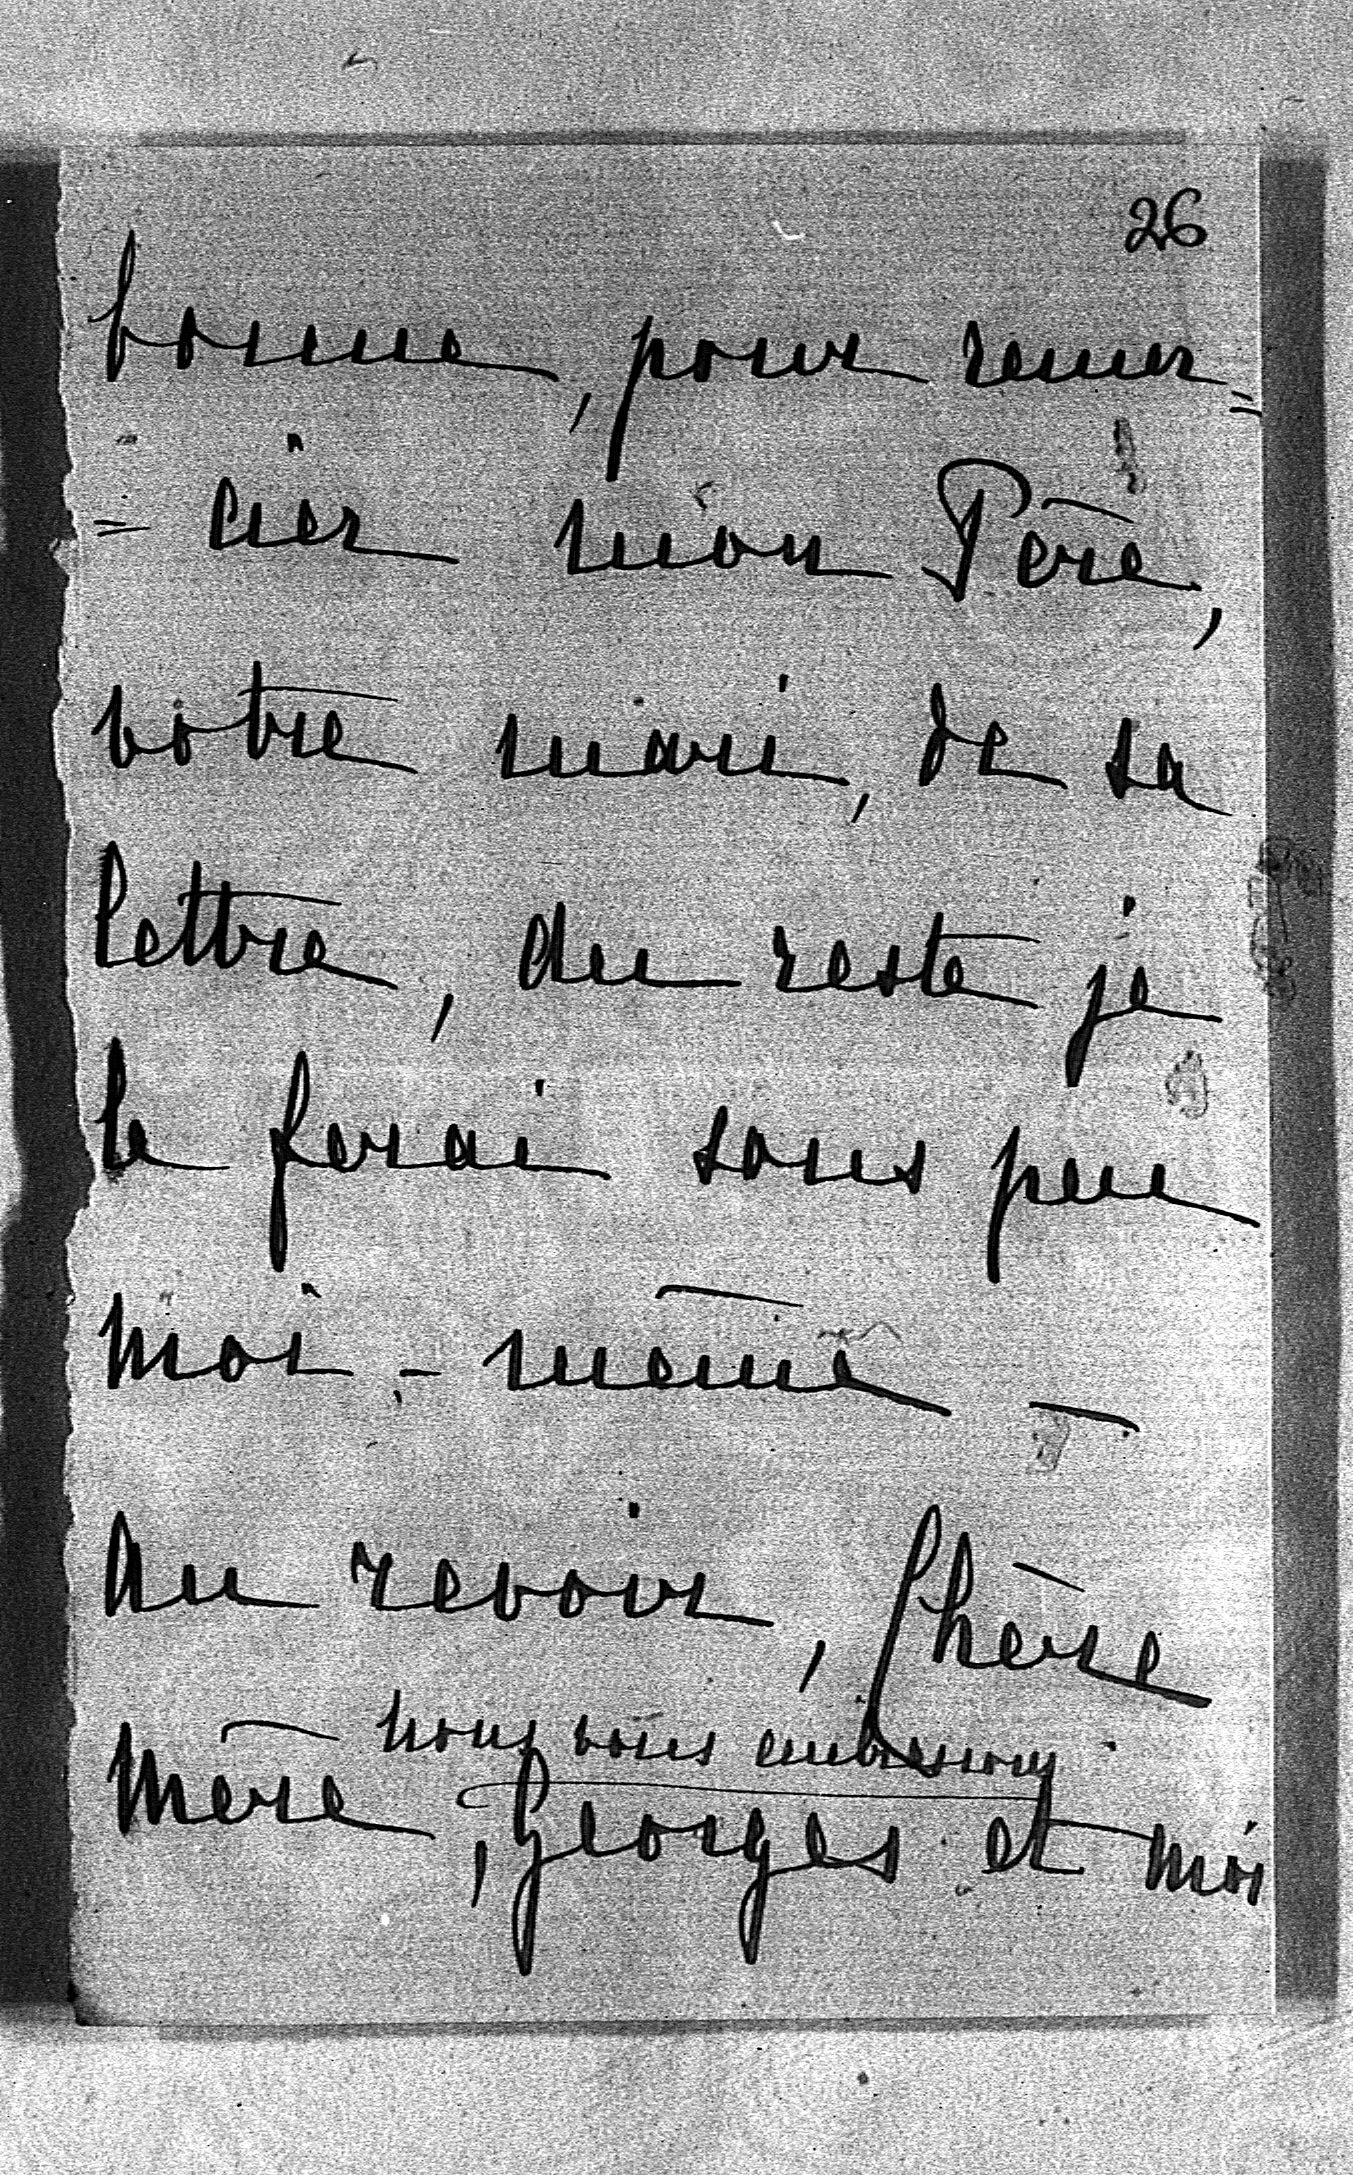 26
bonne, pour remer=
=cier mon Père,
votre mari, de sa
lettre, du reste je
le ferai sous peu
moi-même —
Au revoir, Chère
nous vous embrassons
Mère, Georges et moi